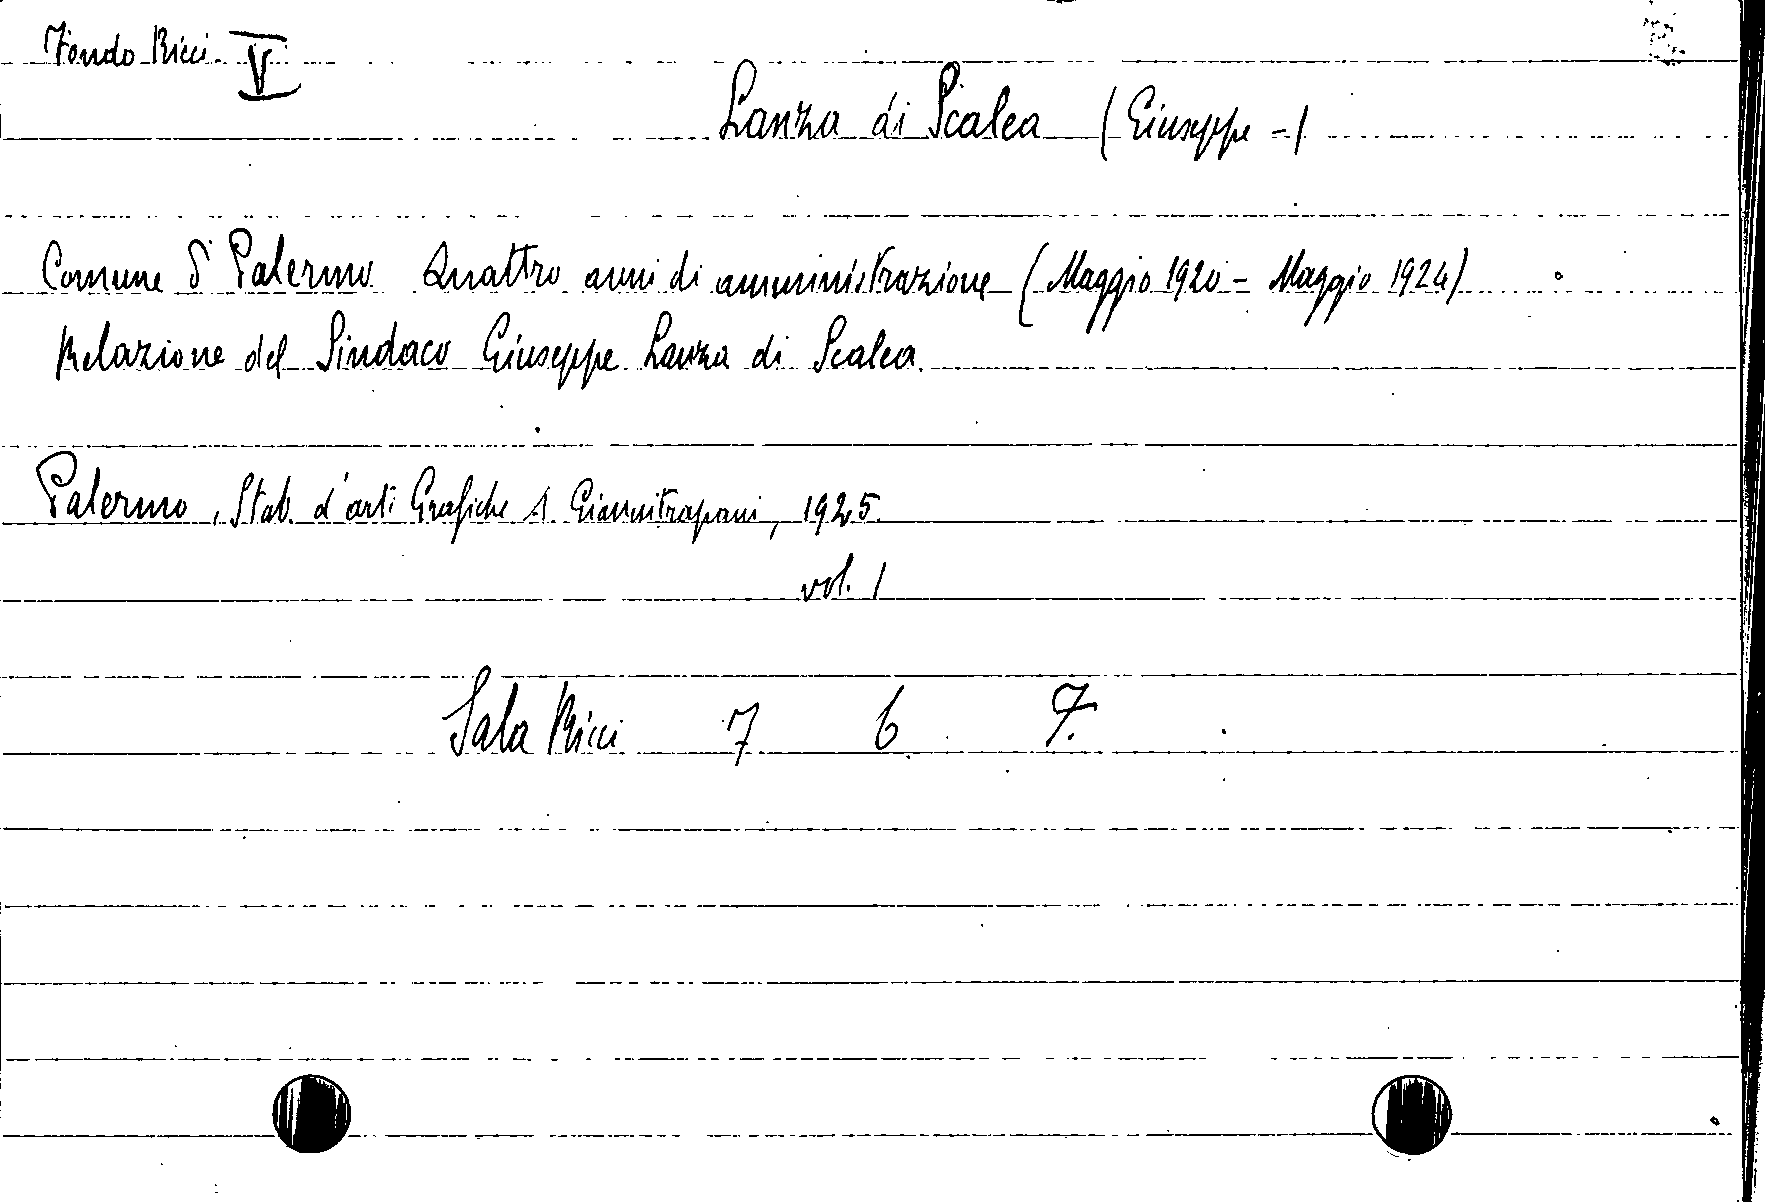 Fondo Ricci. V
Lanza di Scalea (Giuseppe -)
Comune di Palermo Quattro anni di amministrazione (Maggio 1920 - Maggio 1924)
Relazione del Sindaco Giuseppe Lanza di Scalea.
Palermo, Stab. d'arti Grafiche A. Giannitrapani, 1925.
vol. 1
Sala Ricci 7 6 7.